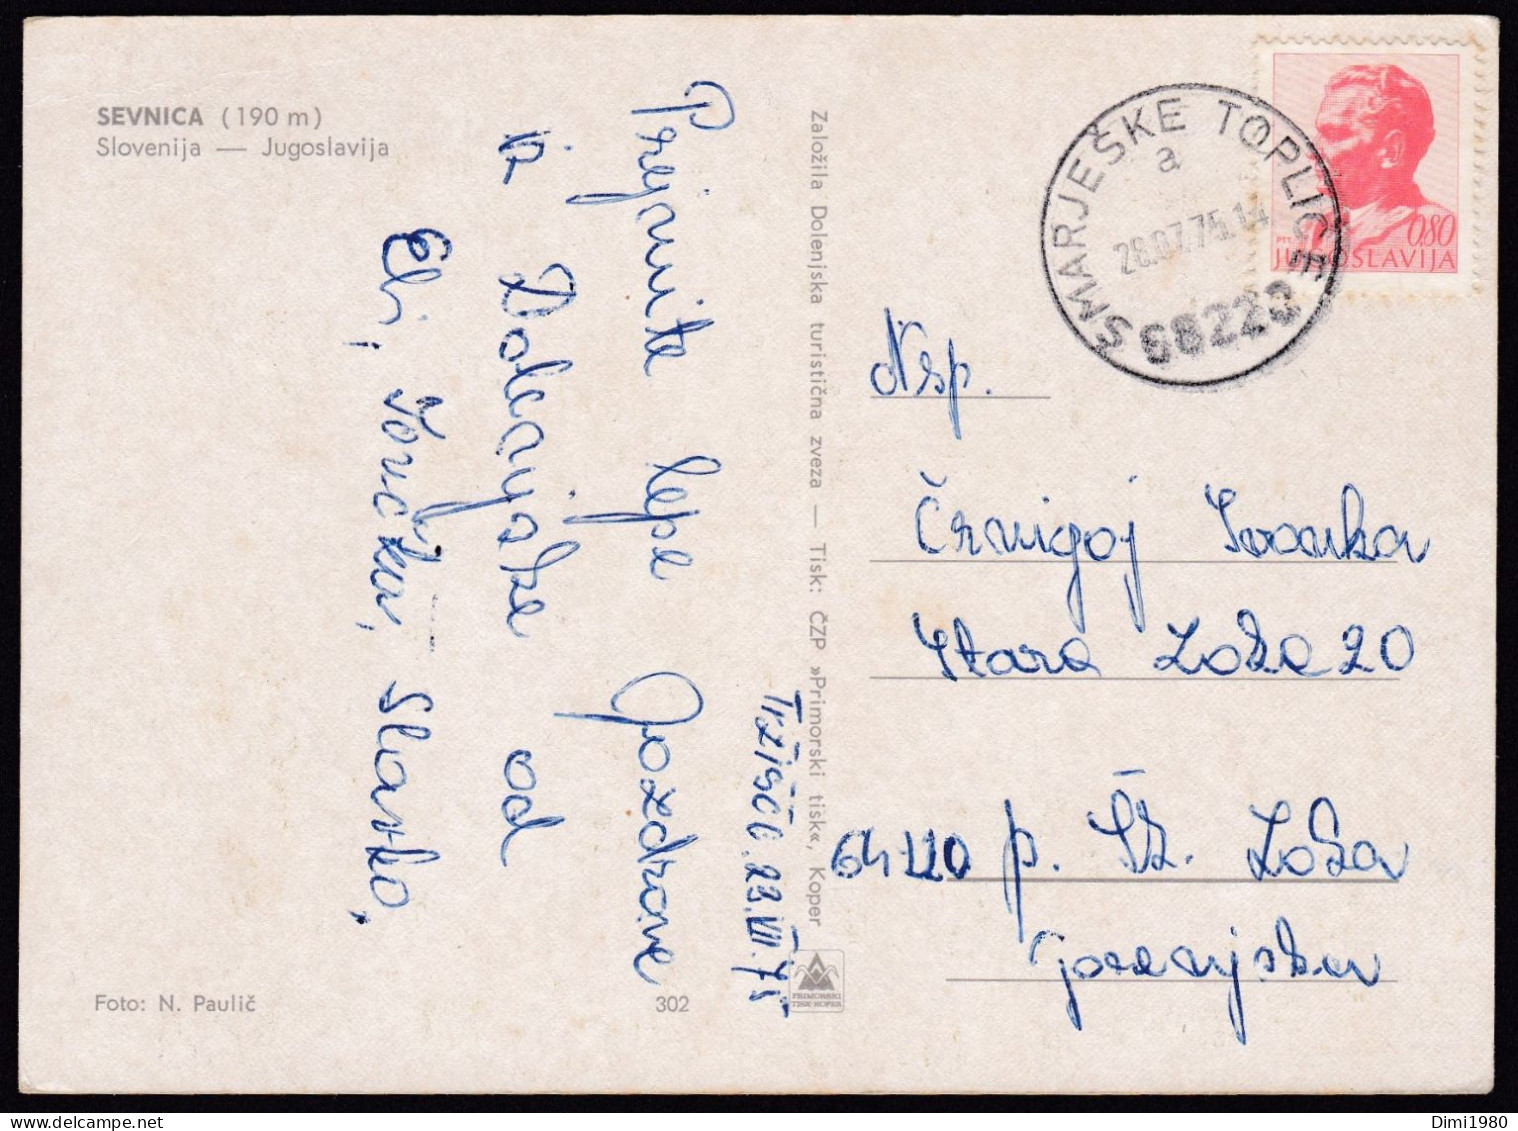 SEVNICA (190 m)
Slovenija — Jugoslavija
Prejmite lepe pozdrave
iz Dolenjske od
Eli, Slavko,
Tržišče. 23.VII.75.
Foto: N. Paulič
302
Založila Dolenjska turistična zveza — Tisk: ČZP »Primorski tisk«, Koper
PRIMORSKI
TISK-KOPER
ŠMARJEŠKE TOPLICE
a
28.07.75.14
68220
PTT
0,80
JUGOSLAVIJA
Nsp.
Črnigoj Ivanka
Stara Loka 20
64220 p. Šk. Loka
Gorenjska
Dimi1980